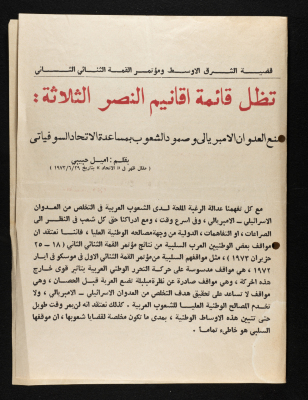 قضية الشرق الاوسط ومؤتمر القمة الثنائي الثاني
تظل قائمة اقانيم النصر الثلاثة :
منع العدوان الامبريالي وصمود الشعوب بمساعدة الاتحاد السوفياتي
بقلم : اميل حبيبي
( مقال ظهر في « الاتحاد » بتاريخ ١٩٧٣/٦/٢٩ )
مع كل تفهمنا عدالة الرغبة الملحة لدى الشعوب العربية في التخلص من العدوان
الاسرائيلي ـ الامبريالي ، وفي اسرع وقت ، ومع ادراكنا حق كل شعب في النظر الى
الصراعات ، او التفاهمات ، الدولية من وجهة مصالحه الوطنية العليا ، فاننا نعتقد ان
مواقف بعض الوطنيين العرب السلبية من نتائج مؤتمر القمة الثنائي الثاني ( ١٨ ـ ٢٥
حزيران ١٩٧٣ ) ، مثل مواقفهم السلبية من مؤتمر القمة الثنائي الاول في موسكو في ايار
١٩٧٢ ، هي مواقف مدسوسة على حركة التحرر الوطني العربية بتأثير قوى خارج
هذه الحركة ، وهي مواقف صادرة عن نظرة مبلبلة تضع العربة قبل الحصان ، وهي
مواقف لا تساعد على تحقيق هدف التخلص من العدوان الاسرائيلي ـ الامبريالي ، ولا
تخدم المصالح الوطنية العليا للشعوب العربية . كذلك نعتقد انه لن يمر وقت طويل
حتى تتبين هذه الاوساط الوطنية ، بمدى ما تكون مخلصة لقضايا شعوبها ، ان موقفها
السلبي هو خاطىء تماما .